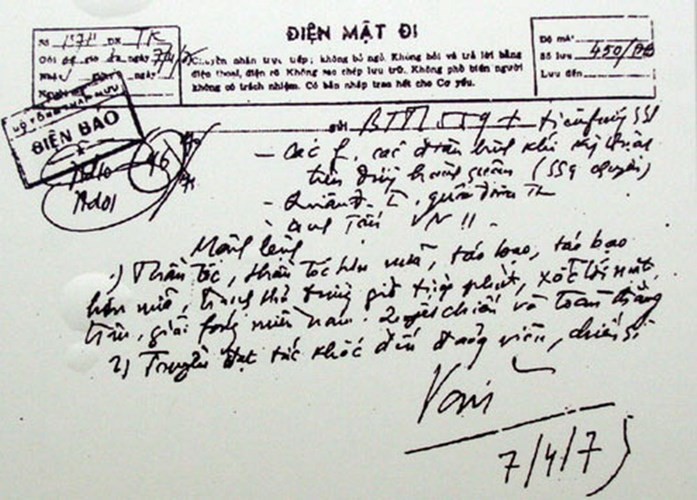 ĐIỆN MẬT ĐI
Số 1574 ĐK TK
ngày 7/4/75
Chuyển nhận trực tiếp; không bỏ ngỏ. Không hỏi và trả lời bằng
điện thoại, điện rõ. Không sao chép lưu trữ. Không phổ biến người
không có trách nhiệm. Có bản nháp trao hết cho Cơ yếu.
Độ mật
Số lưu 450/ĐB
Lưu đến
BỘ TỔNG THAM MƯU
ĐIỆN BÁO
gửi BTM 559 + tiền
- Các f, các đơn binh khí kỹ thuật
trên đường hành quân (559 chuyển)
- Quân đ, quân đoàn
Mệnh lệnh
1) Thần tốc, thần tốc hơn nữa, táo bạo, táo bạo
hơn nữa, tranh thủ từng giờ từng phút, xốc tới mặt
trận, giải fóng miền nam. Quyết chiến và toàn thắng
2) Truyền đạt tức khắc đến đảng viên, chiến sĩ
Văn
7/4/75